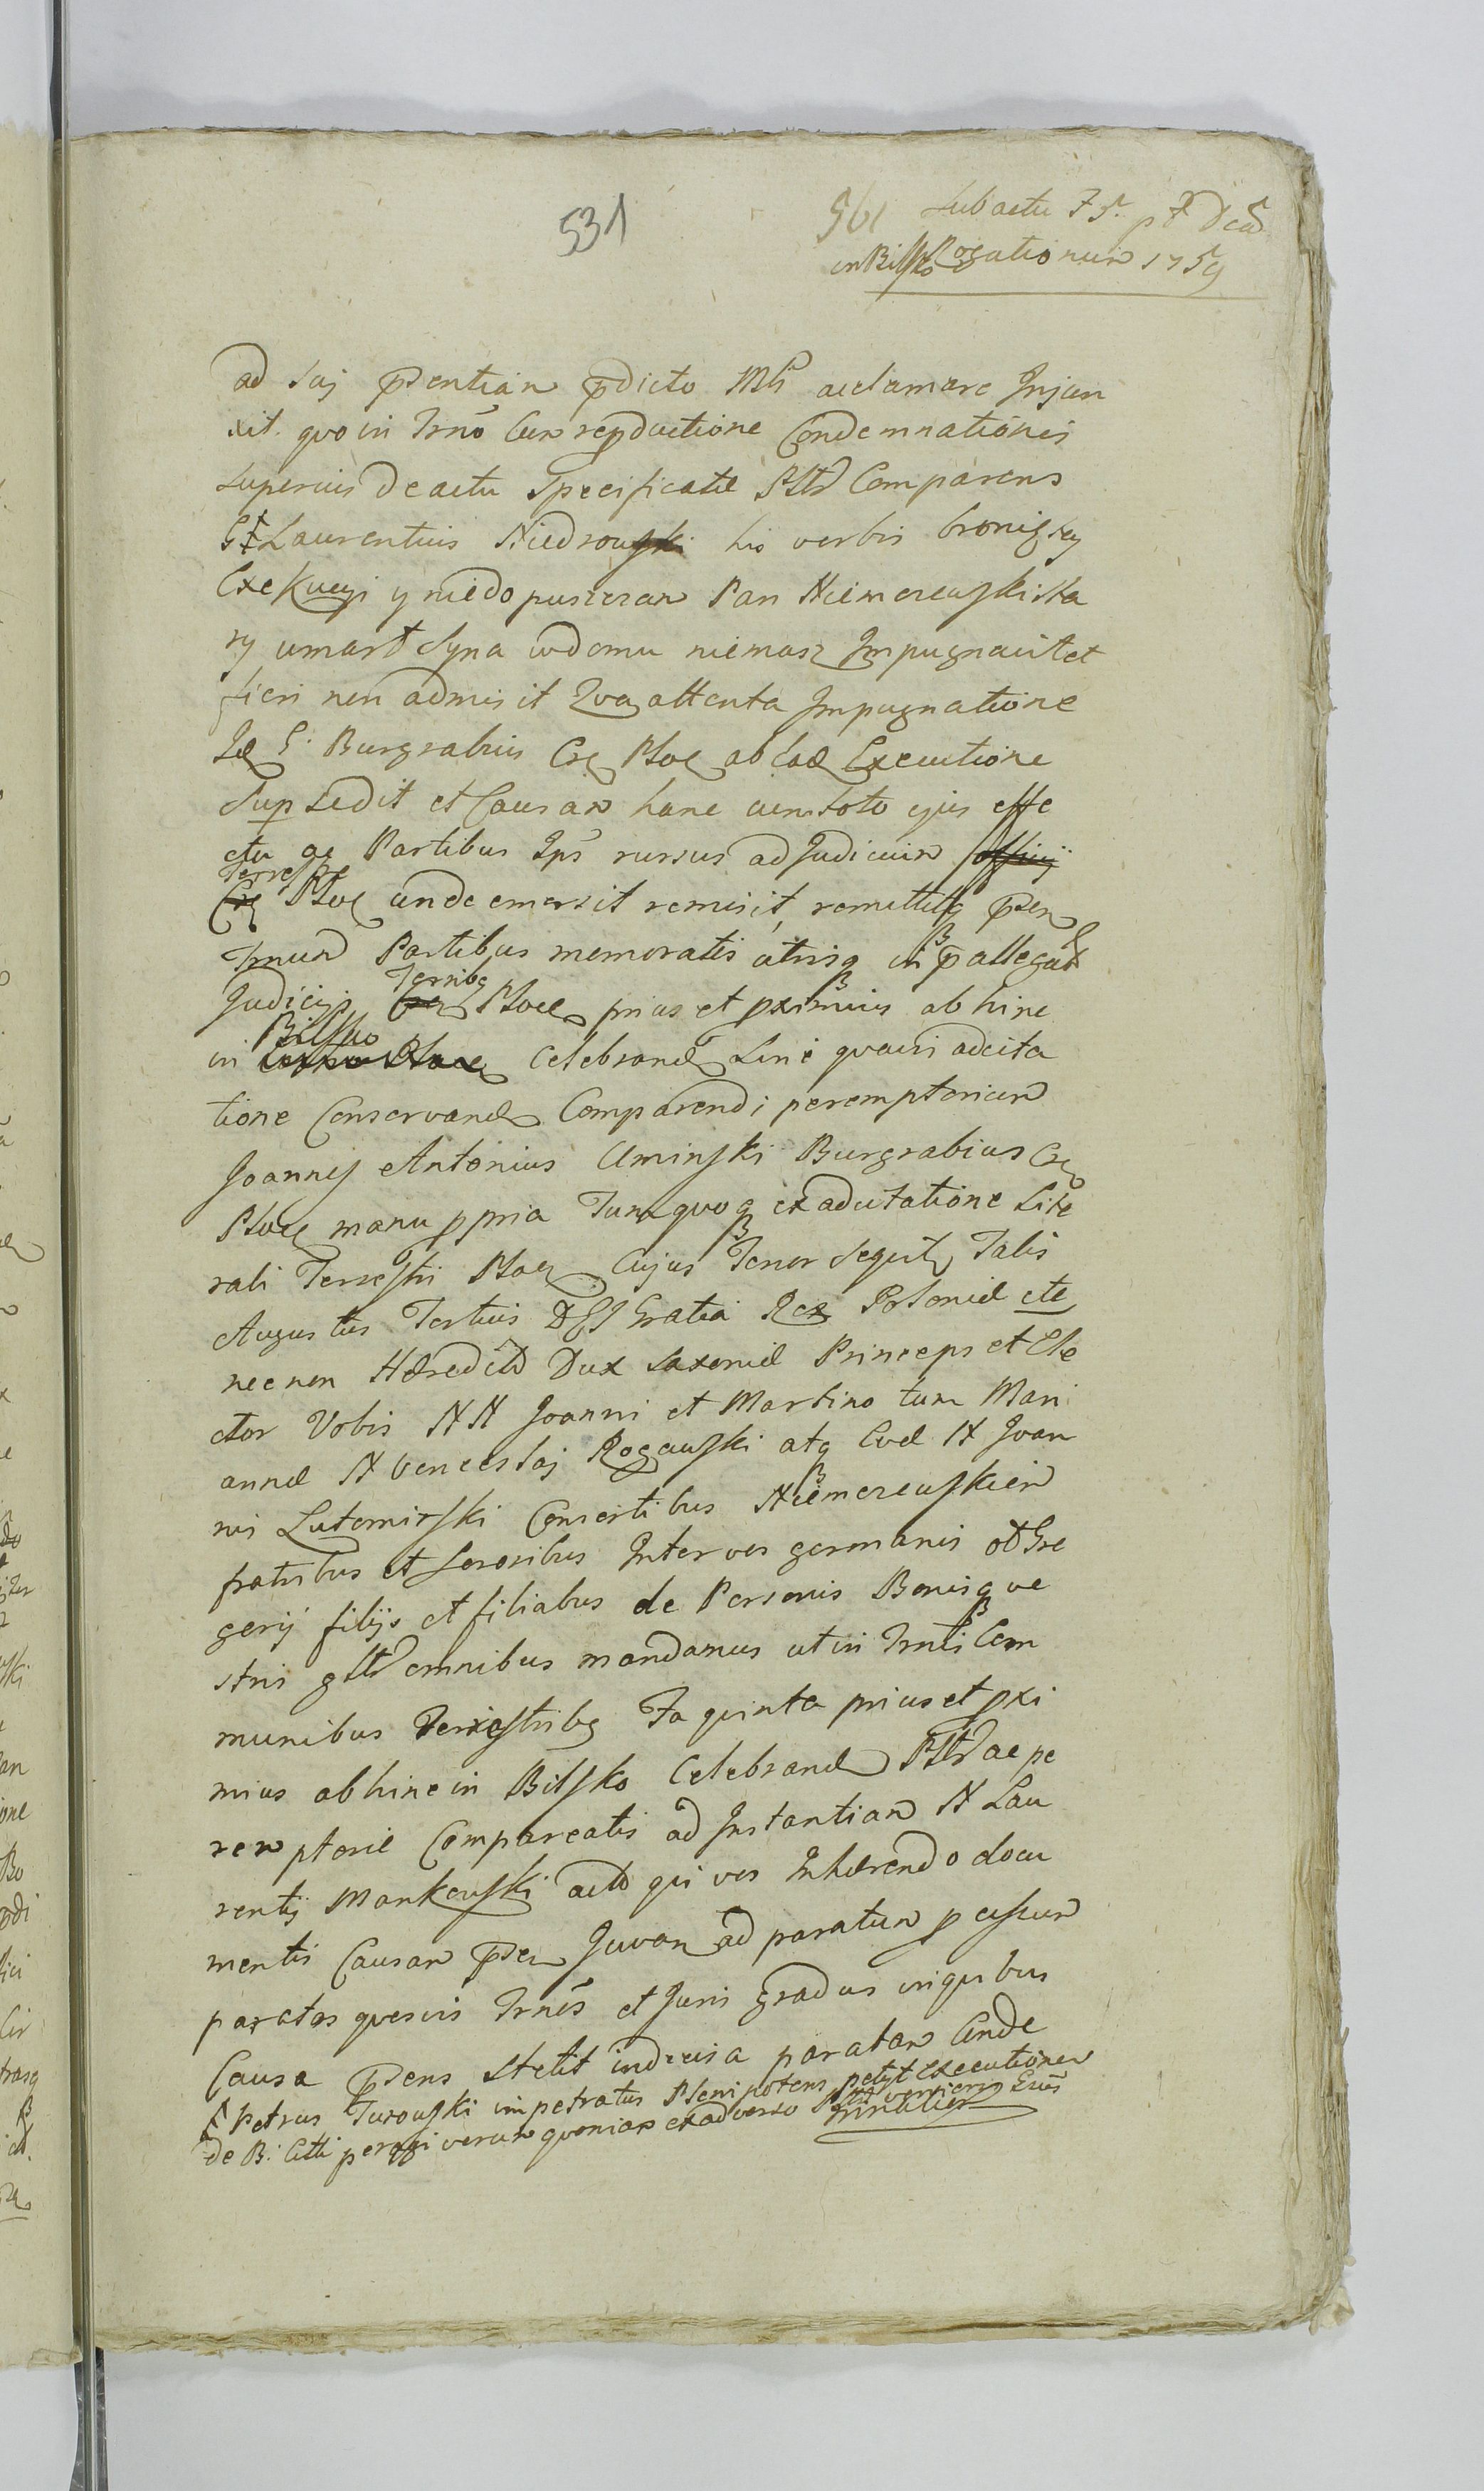 531
561 Sub actu F 5. p f Dca
in Bilsko Rogationum 1759
ad sui pdentiam pdicto Mli acclamare Injun
xit. quo in Trno Cum repductione Condemnationis
superius de actu Specificatae Pltr Comparens
G Laurentius Niedrowski his verbis bronię tey
Exekucyi y niedopuszczam Pan Niemerewski sta
ry umarł Syna w domu niemasz Impugnavit et
fieri non admisit Qua attenta Impugnatione
G. Burgrabius Cre Ploc ab Executione
Supsedit et Causam hanc cum toto ejus effe
ctu ac Partibus Ips rursus ad Judicium officij
Terrestre
Cre Ploc unde emersit remisit, remittitq pden
Trnum Partibus memoratis utrisq in pallegat
Judicijs Terribq Ploce prius et pximius ab hinc
Bilsko
in Celebrand Sine quavi adcita
tione Conservand Comparendi peremptorium
Joannes Antonius Uminski Burgrabius Cre
Ploce manu ppria Tum quoq ex adcitatione Lite
rali Terrestri Ploce Cujus Tenor sequit Talis
Augustus Tertius DEI Gratia Rex Poloniae etc
nec non Haeredit Dux Saxoniae Princeps et Ele
ctor Vobis NN Joanni et Martino tum Mari
annae N Venceslaj Rogawski atq Evae N Joan
nis Lutomirski Consortibus Niemerewskien
fratribus et Sororibus Inter vos germanis olt Gre
gerij filijs et filiabus de Personis Bonisq ve
stris gltr omnibus mandamus ut in Trnis Com
munibus Terrestribq Fa quinta prius et pxi
mius ab hinc in Bilsko Celebrand Pltr ac pe
remptorie Compareatis ad Instantiam N Lau
rentij Mankowski act qui vos Inhaerendo docu
mentis Causam pden Juvan ad paratum p cusum
paratos quosvis Trnos et Juris gradus in quibus
Causa pdens stetit indecisa paratam Unde
G Petrus Turowski impetratus Plenipotens petyt Executionem
de B: Citti peragi verum quoniam ex adverso